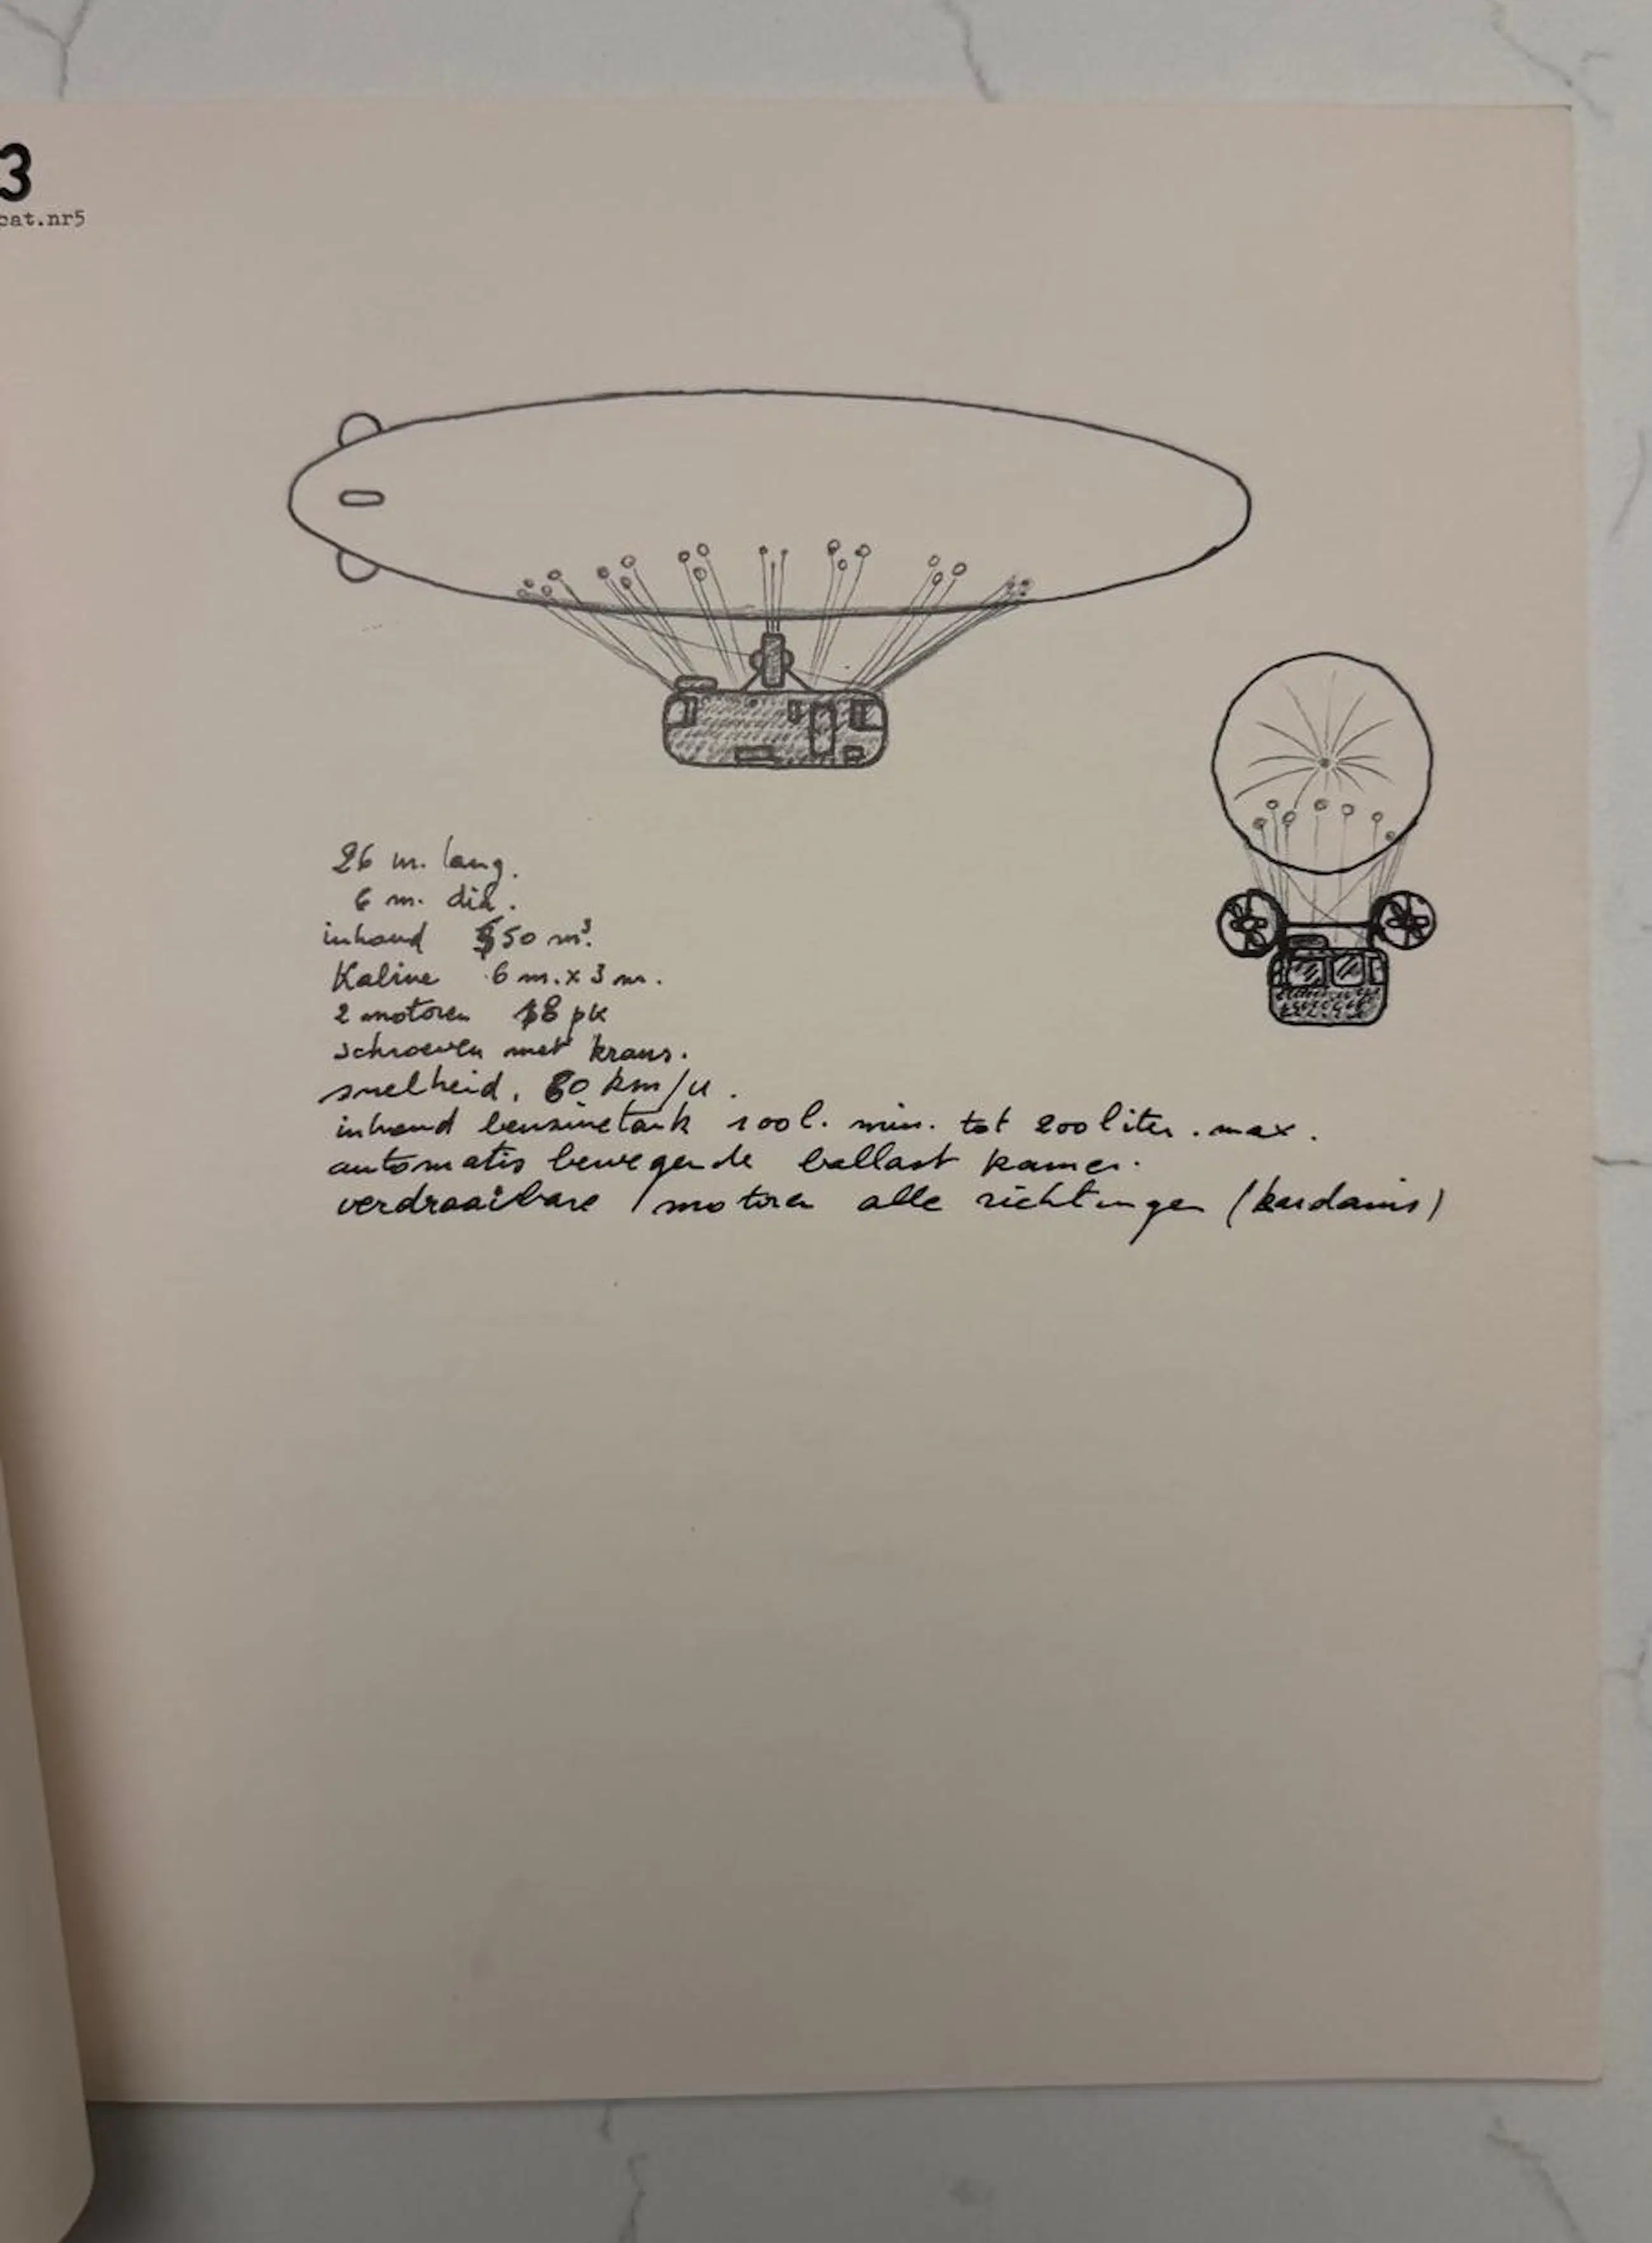 3
cat.nr5
26 m. lang.
6 m. dia.
inhoud 550 m³.
Kabine 6 m. x 3 m.
2 motoren 18 pk
schroeven met krans.
snelheid, 80 km/u.
inhoud benzinetank 100 l. min. tot 200 liter. max.
automatis bewegende ballast kamer.
verdraaibare motoren alle richtingen (kardanis)